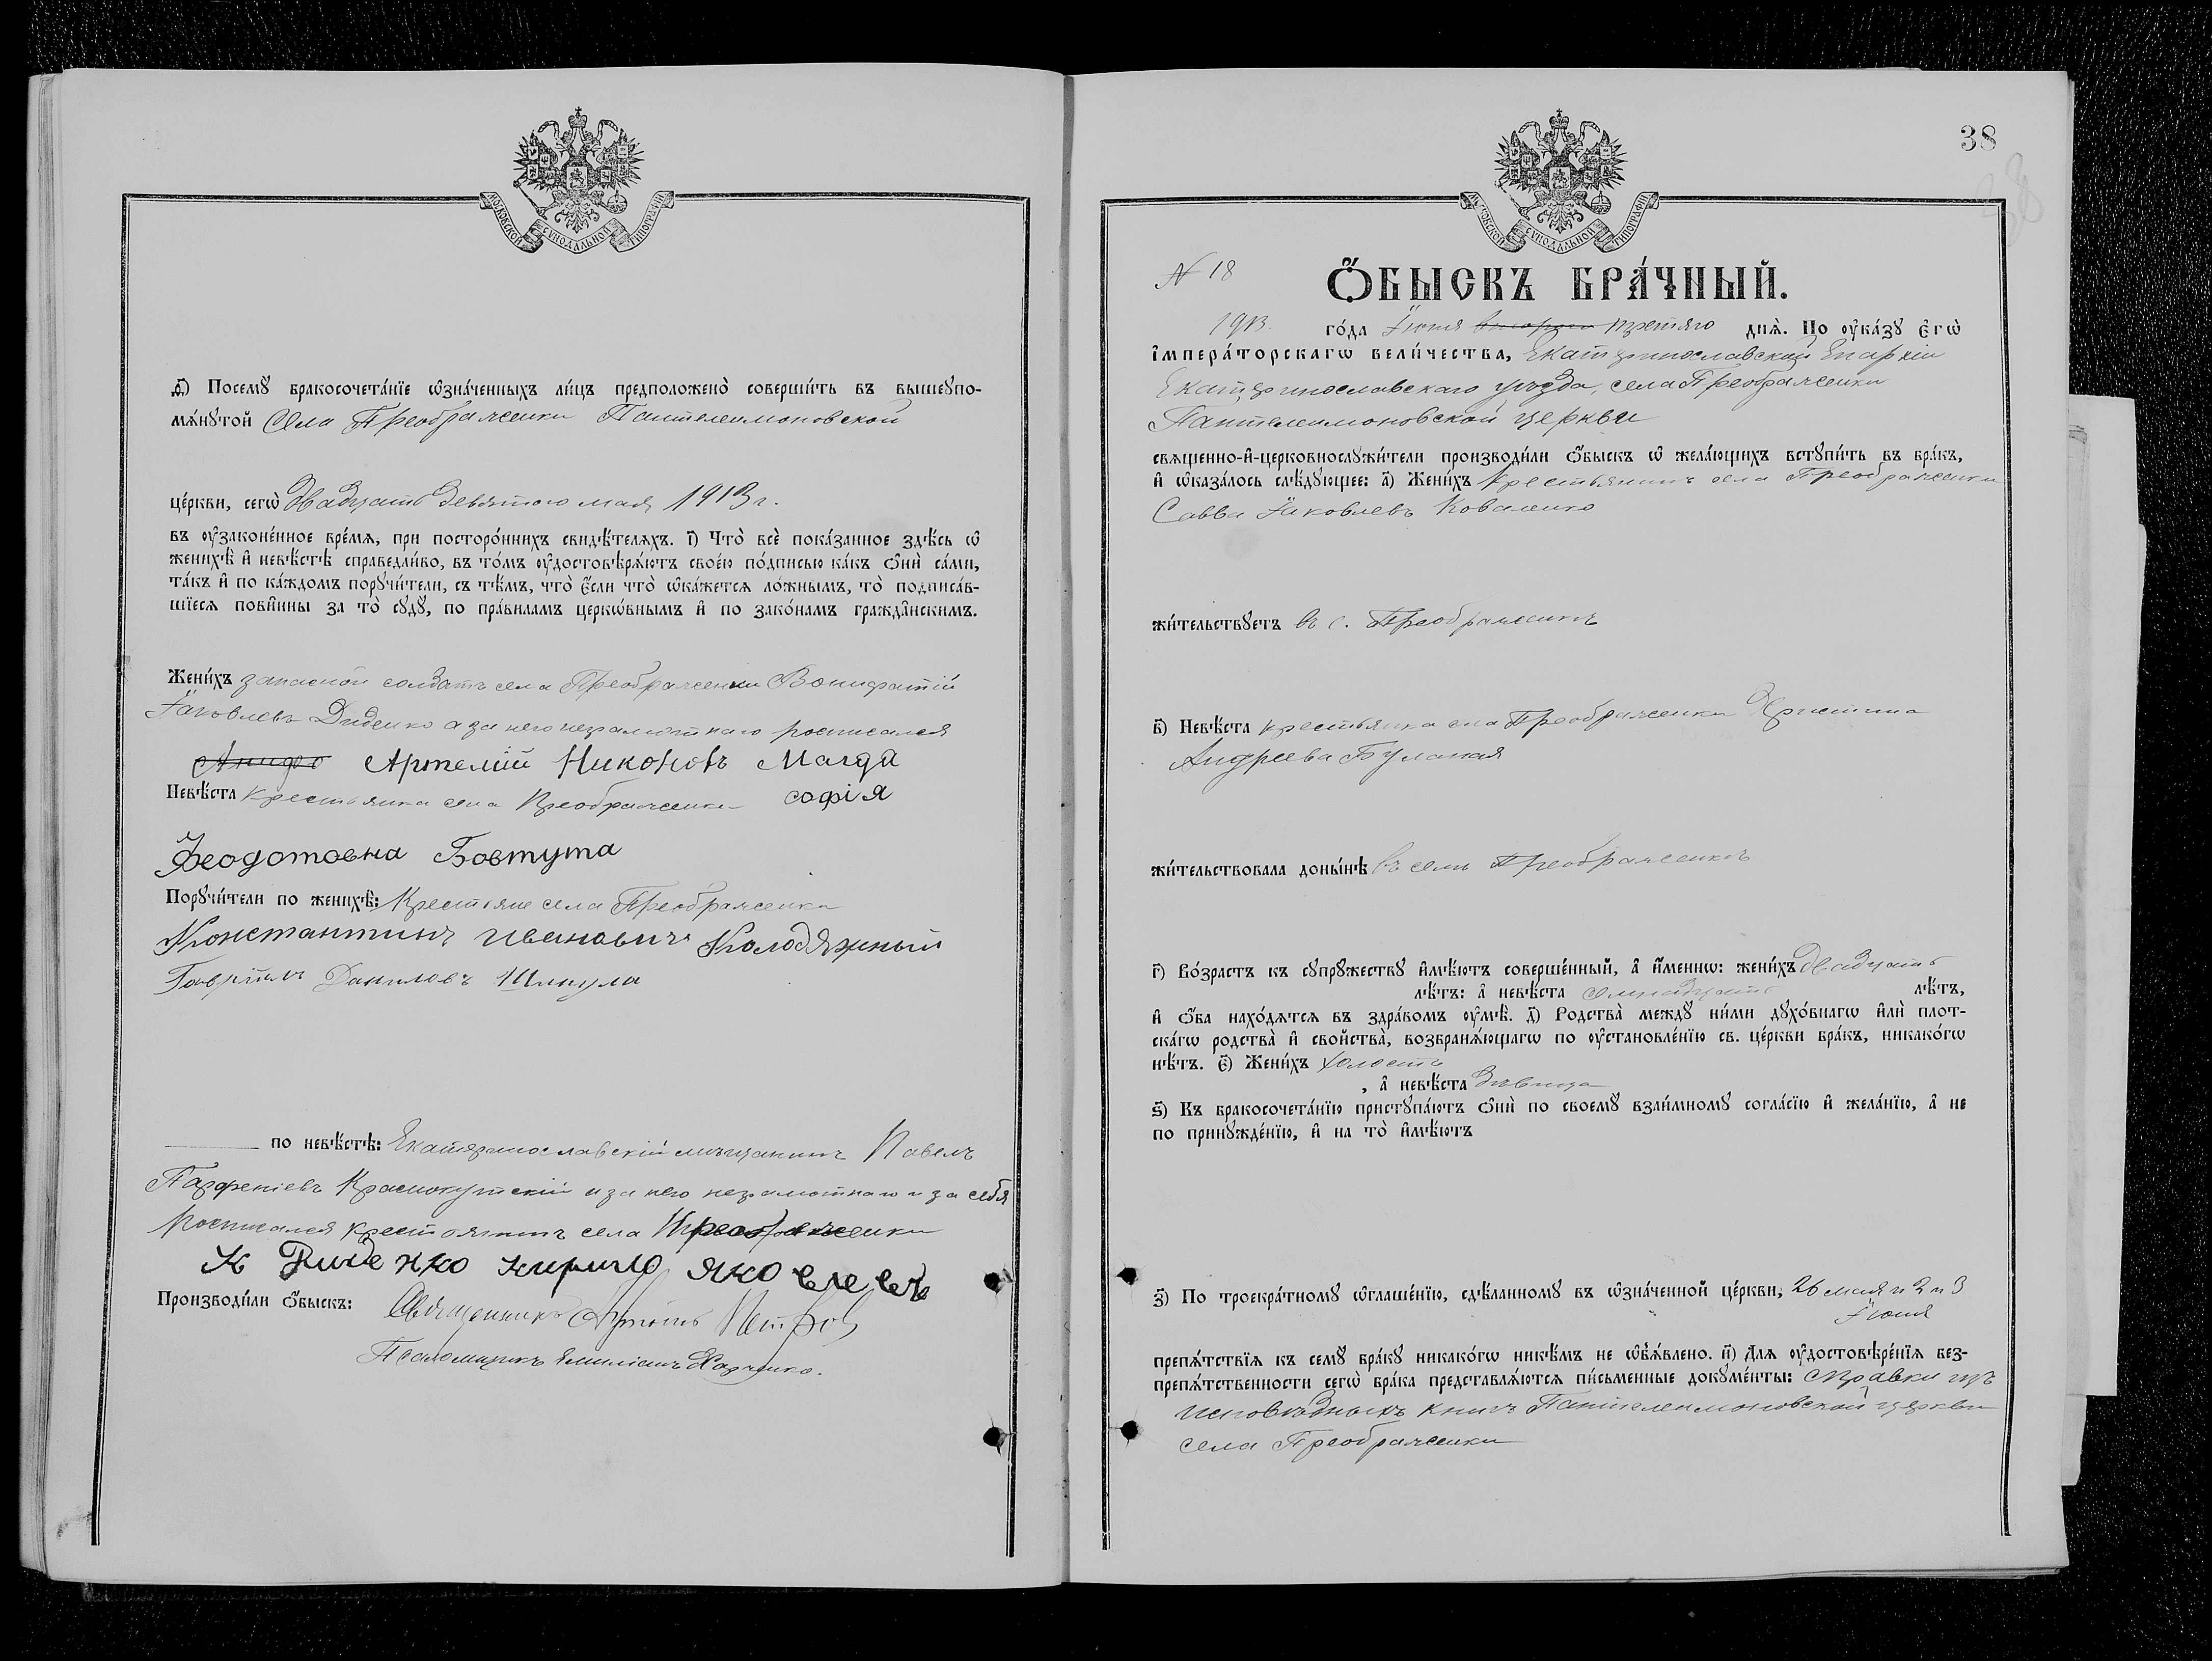 МОСКОВСКОЙ СѴНОДАЛЬНОЙ ТИПОГРАФІИ
ѳ҃) Посемꙋ̀ бракосочета́нїе ѡ҆зна́ченныхъ ли́цъ предположено̀ соверши́ть въ вышеупо-
мѧ́нꙋтой села Преображенки Пантелеимоновской
це́ркви, сегѡ̀ двадцать девятого мая 1913 г.
въ ᲂу҆зако́ненное вре́мѧ, при посторо́ннихъ свидѣ́телѧхъ. і҃) Что̀ всѐ пока́занное здѣ́сь ѡ҆
женихѣ̀ и҆ невѣ́стѣ справедли́во, въ то́мъ ᲂу҆достовѣрѧ́ютъ свое́ю по́дписью ка́къ ѻ҆нѝ са́ми,
та́къ и҆ по ка́ждомъ порꙋчи́тели, съ тѣ́мъ, что̀ е҆́сли что̀ ѡ҆ка́жетсѧ ло́жнымъ, то̀ подписа́в-
шїесѧ пови́нны за то̀ сꙋдꙋ̀, по пра́виламъ церко́внымъ и҆ по зако́намъ гражда́нскимъ.
Жени́хъ запасной солдатъ села Преображенки Вонифатій
Іаковлевъ Диденко а за него неграмотнаго росписался
Артемій Никоновъ Магда
Невѣ́ста крестьянка села Преображенки софія
Феодотовна Бовтута
Порꙋчи́тели по женихѣ̀: Крестьяне села Преображенки
Константинъ Ивановичъ Колодяжный
Гавріилъ Даниловъ Шкула
по невѣ́стѣ: Екатеринославскій мѣщанинъ Павелъ
Парфеніевъ Краснокутскій и за него неграмотнаго и за себя
росписался крестьянинъ села Преображенки
К Диденко кирило яковлевъ
Производи́ли ѻ҆́быскъ: Священникъ Антоній Петров
Псаломщикъ Емиліанъ Харченко.
38
МОСКОВСКОЙ СѴНОДАЛЬНОЙ ТИПОГРАФІИ
N 18
Ѻ҆́БЫСКЪ БРА́ЧНЫЙ.
1913. го́да Іюня второго третяго днѧ̀. По ᲂу҆ка́зꙋ є҆гѡ̀
і҆мпера́торскагѡ вели́чества, Екатеринославской Епархіи
Екатеринославскаго уѣзда, села Преображенки
Пантелеимоновской церкви
свѧще́нно-и҆-церковнослꙋжи́тели производи́ли ѻ҆́быскъ ѡ҆ жела́ющихъ встꙋпи́ть въ бра́къ,
и҆ ѡ҆каза́лось слѣ́дꙋющее: а҃) Жени́хъ крестьянинъ села Преображенки
Савва Іаковлевъ Коваленко
жи́тельствꙋетъ въ с. Преображенкѣ
в҃) Невѣ́ста крестьянка села Преображенки Христина
Андреева
жи́тельствовала доны́нѣ въ селѣ Преображенкѣ
г҃) Во́зрастъ къ сꙋпрꙋ́жествꙋ и҆мѣ́ютъ соверше́нный, а҆ и҆́меннѡ: жени́хъ двадцать
лѣ́тъ: а҆ невѣ́ста лѣ́тъ,
и҆ ѻ҆́ба нахо́дѧтсѧ въ здра́вомъ ᲂу҆мѣ̀. д҃) Родства̀ междꙋ̀ ни́ми дꙋхо́внагѡ и҆лѝ плот-
ска́гѡ родства̀ и҆ сво́йства, возбранѧ́ющагѡ по ᲂу҆становле́нїю св. це́ркви бра́къ, никако́гѡ
нѣ́тъ. є҃) Жени́хъ холостъ
, а҆ невѣ́ста дѣвица
ѕ҃) Къ бракосочета́нїю пристꙋпа́ютъ ѻ҆нѝ по своемꙋ̀ взаи́мномꙋ согла́сїю и҆ жела́нїю, а҆ не
по принꙋжде́нїю, и҆ на то̀ и҆мѣ́ютъ
з҃) По троекра́тномꙋ ѡ҆глаше́нїю, сдѣ́ланномꙋ въ ѡ҆зна́ченной це́ркви, 26 мая и 2 и 3
Іюня
препѧ́тствїѧ къ семꙋ̀ бра́кꙋ никако́гѡ никѣ́мъ не ѡ҆б̾ѧ́влено. и҃) Длѧ ᲂу҆достовѣре́нїѧ без-
препѧ́тственности сегѡ̀ бра́ка представлѧ́ютсѧ пи́сьменные докꙋме́нты: справки изъ
исповѣдныхъ книгъ Пантелеимоновской церкви
села Преображенки